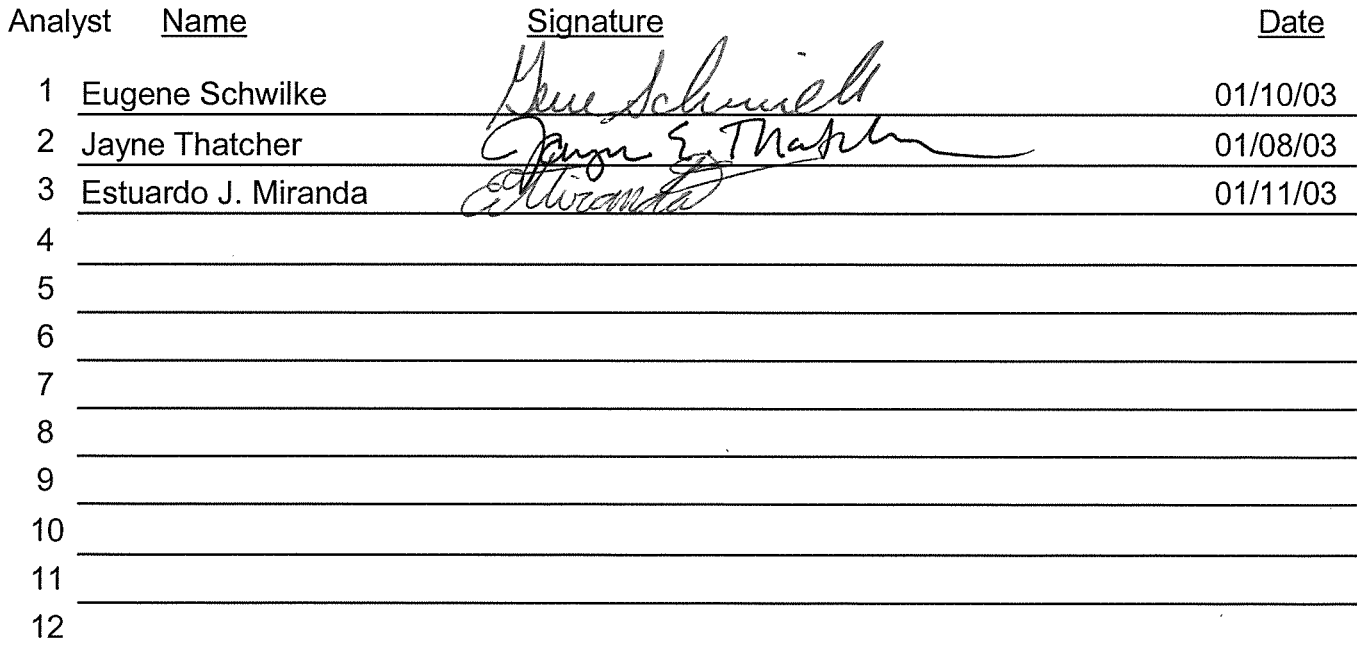 Analyst Name Signature Date
1 Eugene Schwilke Gene Schwilke 01/10/03
2 Jayne Thatcher Jayne E. Thatcher 01/08/03
3 Estuardo J. Miranda EJMiranda 01/11/03
4
5
6
7
8
9
10
11
12